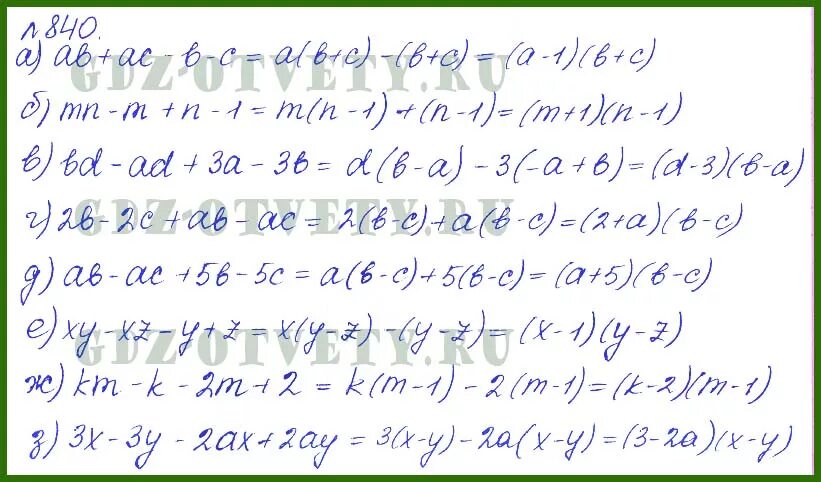 №840.
а) ab+ac-b-c = a(b+c)-(b+c) = (a-1)(b+c)
б) mn-m+n-1 = m(n-1)+(n-1) = (m+1)(n-1)
в) bd-ad+3a-3b = d(b-a)-3(-a+b) = (d-3)(b-a)
г) 2b-2c+ab-ac = 2(b-c)+a(b-c) = (2+a)(b-c)
д) ab-ac+5b-5c = a(b-c)+5(b-c) = (a+5)(b-c)
е) xy-xz-y+z = x(y-z)-(y-z) = (x-1)(y-z)
ж) km-k-2m+2 = k(m-1)-2(m-1) = (k-2)(m-1)
з) 3x-3y-2ax+2ay = 3(x-y)-2a(x-y) = (3-2a)(x-y)
GDZ-OTVETY.RU
GDZ-OTVETY.RU
GDZ-OTVETY.RU